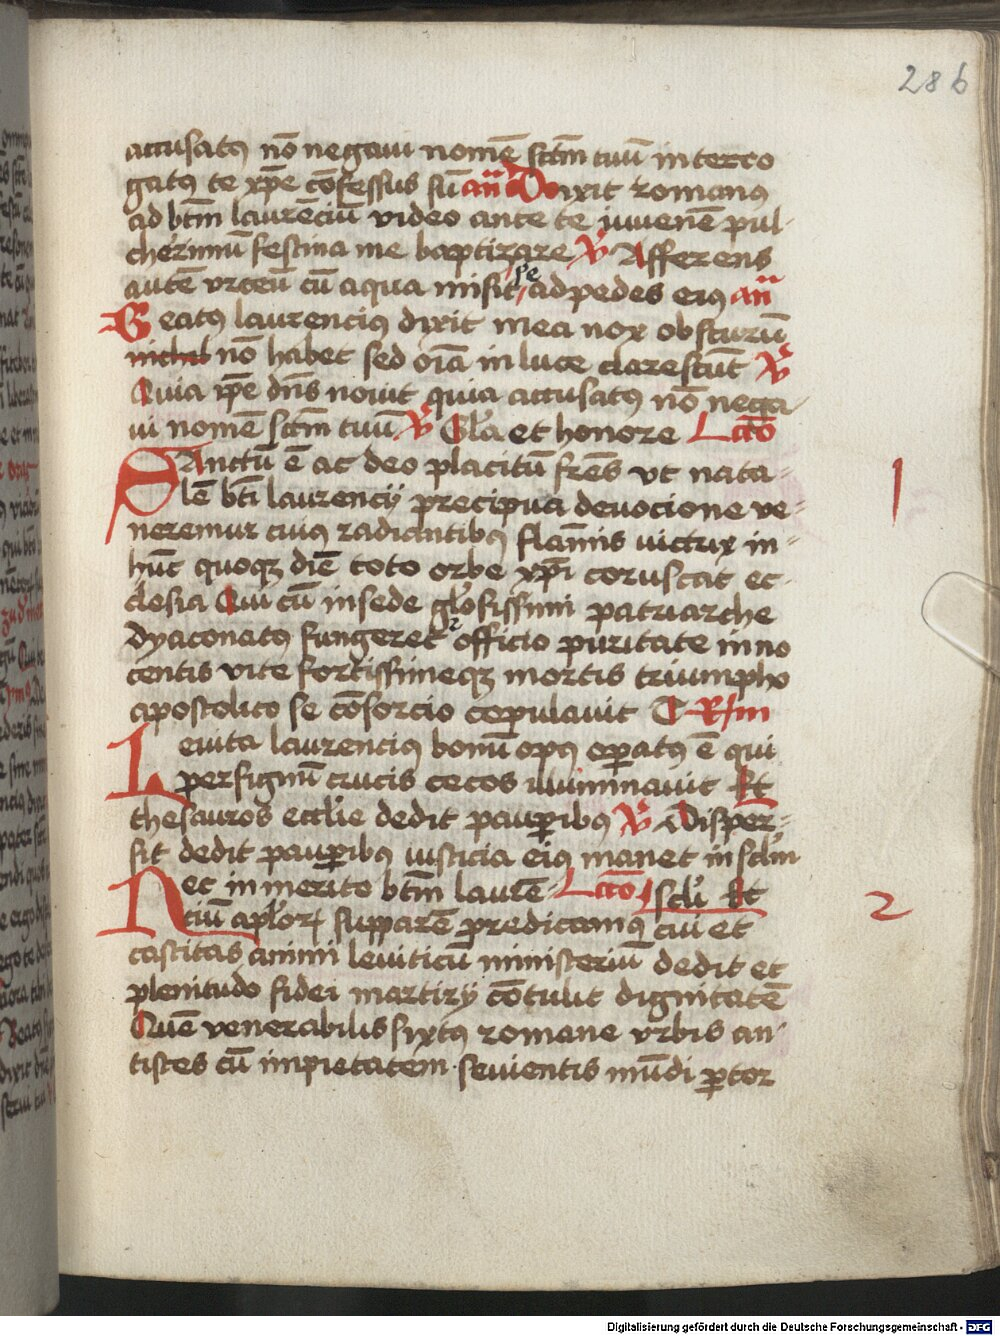 286
accusatꝯ nō negaui nomē sctm̄ tuū interro
gatꝯ te xp̄e cōfessus sū an̄ Dixit romanꝯ
ad btm̄ laurēciū video ante te iuuenē pul-
cherimū festina me baptizare ℣ Afferens
autē vrceū cū aqua misit se ad pedes eiꝯ an̄
Beatꝯ laurenciꝯ dixit mea nox obscurū
nichil nō habet sed oīa in luce clarescūt ℣
Quia ip̄e dn̄s nouit quia accusatꝯ nō nega-
ui nomē sctm̄ tuū ℣ Gl'a et honore Lcc̄o
SAnctū ē ac deo placitū fr̄es vt nata-
lē bt̄i laurencij precipua deuocione ve-
neremur cuiꝯ radiantibꝯ flāmis victrix in-
hūc quoqꝫ diē toto orbe xp̄i coruscat ec-
clesia Qui cū in sede gl'osissimi patriarche
dyaconatꝯ fungeret᷑ officio puritate inno
centis vite fortissimeqꝫ mortis triumpho
apostolico se cōsorcio copulauit ℂ R̄sm
Leuita laurenciꝯ bonū opꝯ oꝑatꝯ ē qui
per signū crucis cecos illuminauit Et
thesauros eccl'ie dedit pauꝑibꝯ ℣ Disper-
sit dedit pauꝑibꝯ iusticia eiꝯ manet in sclm̄
Nec inmerito btm̄ laurē- Lcc̄o scl'i Et
tiū apl'oꝝ supparē predicamꝯ cui et
castitas animi leuiticū ministeriū dedit et
plenitudo fidei martirij cōtulit dignitatē
Quē venerabilis sixtꝯ romane vrbis an-
tistes cū impietatem seuientis mūdi ꝑtor
1
2
Digitalisierung gefördert durch die Deutsche Forschungsgemeinschaft - DFG